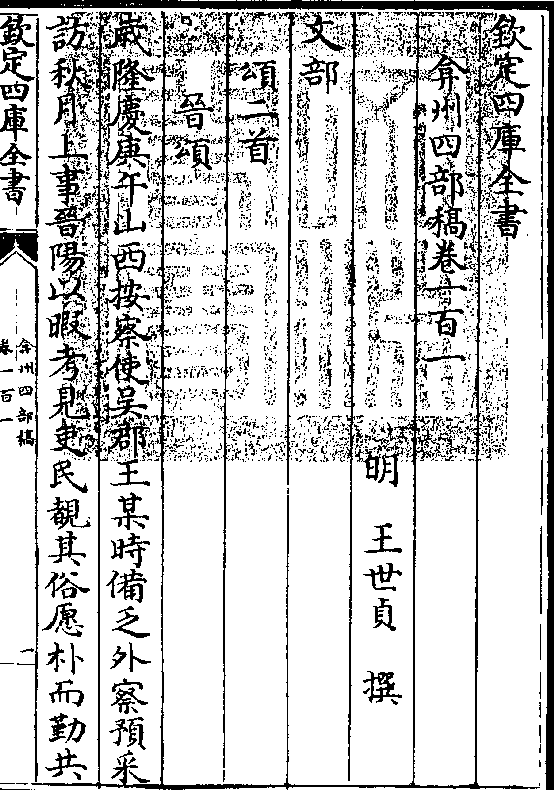 欽定四庫全書
弇州四部稿卷一百一
明 王世貞 撰
文部
頌二首
晉頌
歲隆慶庚午山西按察使吳郡王某時備乏外察預采
訪秋月上事晉陽以暇考見吏民覩其俗愿朴而勤共
欽定四庫全書
弇州四部稿
卷一百一
一